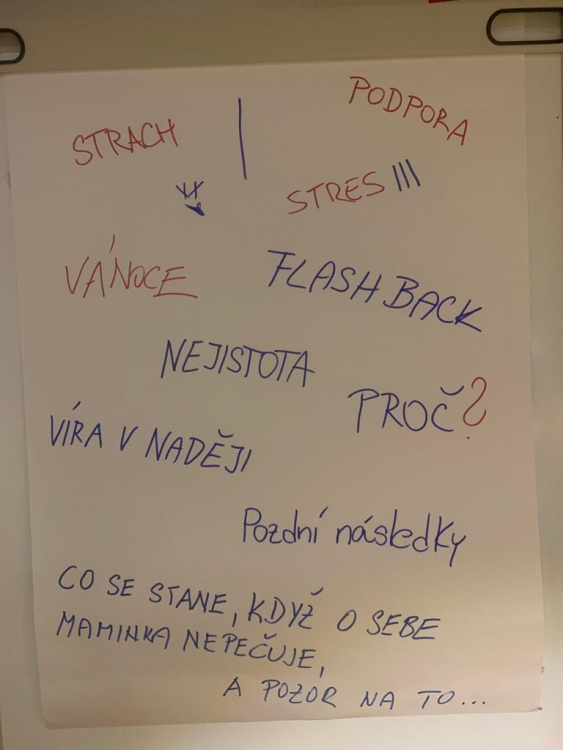 PODPORA
STRACH
STRES
VÁNOCE
FLASHBACK
NEJISTOTA
PROČ?
VÍRA V NADĚJI
Pozdní následky
CO SE STANE, KDYŽ O SEBE
MAMINKA NEPEČUJE,
A POZOR NA TO...